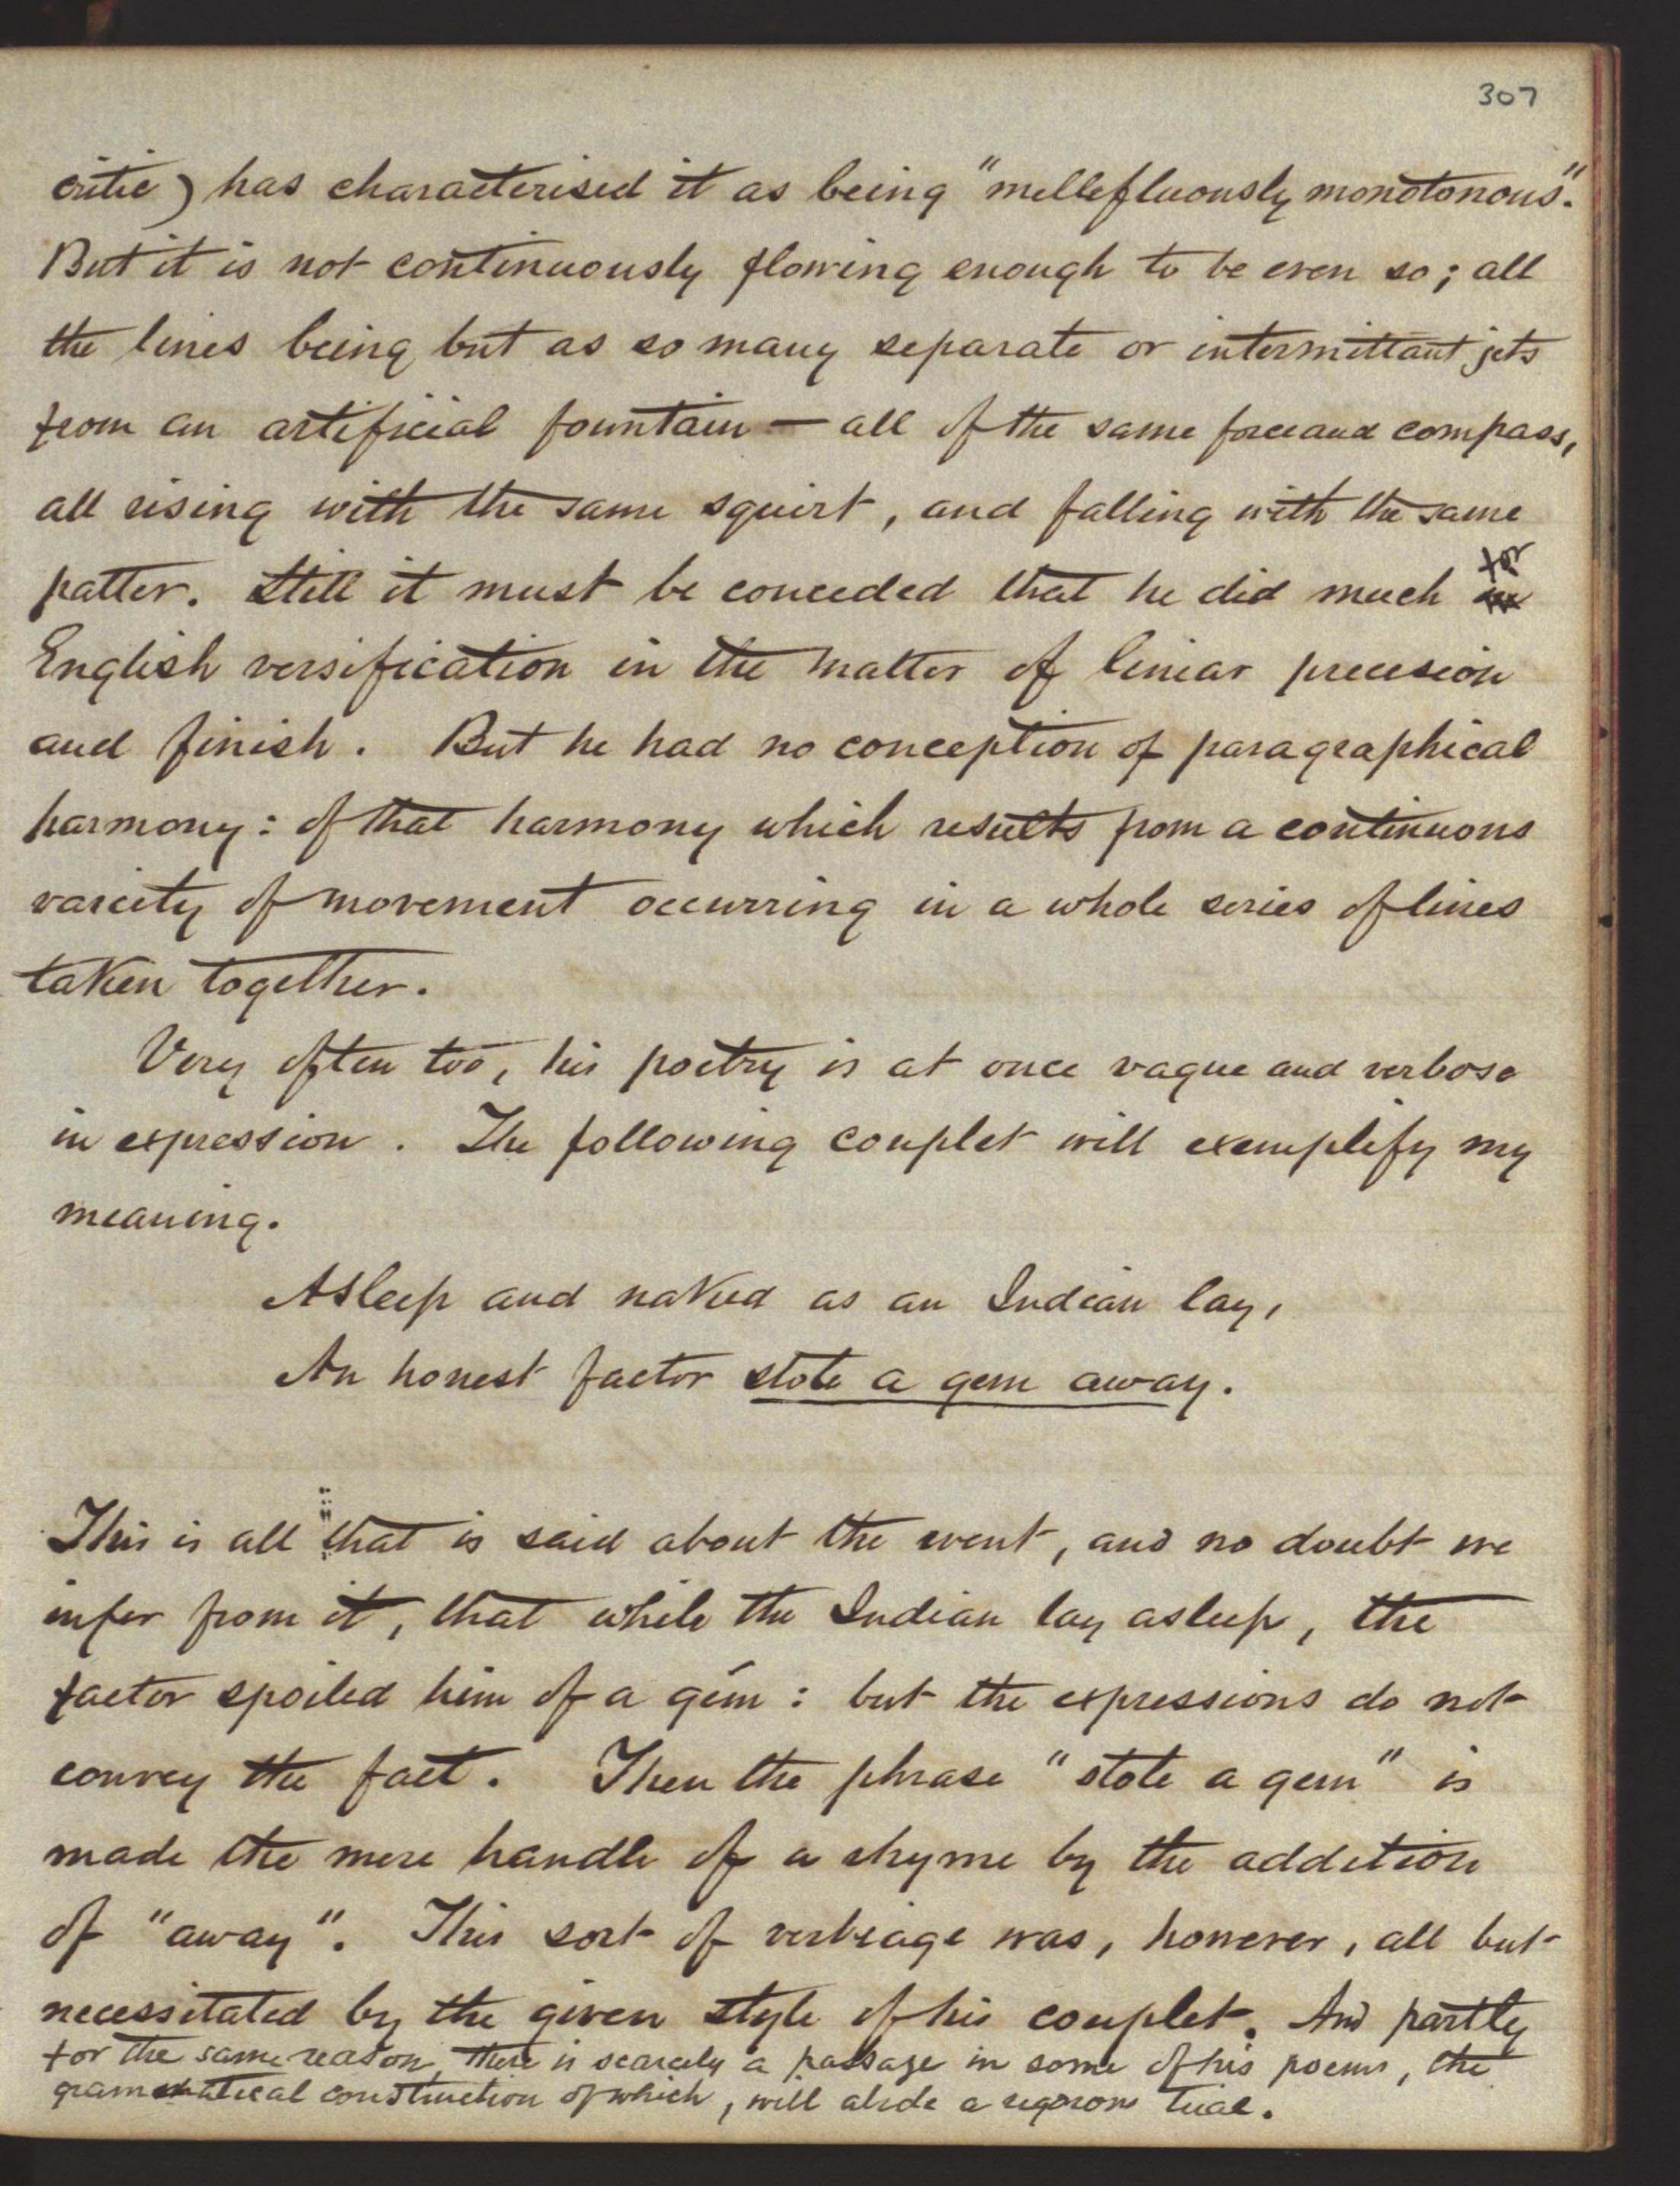 307
critic) has characterised it as being "mellefluously monotonous".
But it is not continuously flowing enough to be even so; all
the lines being but as so many separate or intermittant jets
from an artificial fountain — all of the same force and compass,
all rising with the same squirt, and falling with the same
patter. Still it must be conceded that he did much for
English versification in the matter of liniar precision
and finish. But he had no conception of paragraphical
harmony: of that harmony which results from a continuous
variety of movement occurring in a whole series of lines
taken together.
Very often too, his poetry is at once vague and verbose
in expression. The following couplet will exemplify my
meaning.
Asleep and naked as an Indian lay,
An honest factor stole a gem away.
This is all that is said about the event, and no doubt we
infer from it, that while the Indian lay asleep, the
factor spoiled him of a gem: but the expressions do not
convey the fact. Then the phrase "stole a gem" is
made the mere handle of a rhyme by the addition
of "away". This sort of verbiage was, however, all but
necessitated by the given style of his couplet. And partly
for the same reason, there is scarcely a passage in some of his poems, the
grammatical construction of which, will abide a regorous trial.